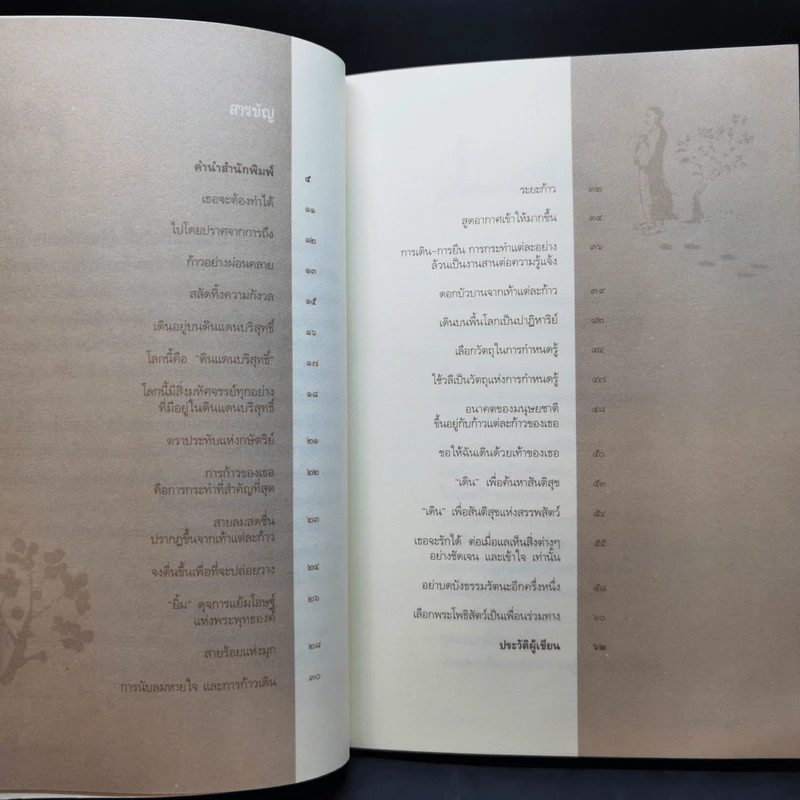 สารบัญ
คำนำสำนักพิมพ์ ๕
เธอจะต้องทำได้ ๑๑
ไปโดยปราศจากการถึง ๑๒
ก้าวอย่างผ่อนคลาย ๑๓
สลัดทิ้งความกังวล ๑๕
เดินอยู่บนดินแดนบริสุทธิ์ ๑๖
โลกนี้คือ "ดินแดนบริสุทธิ์" ๑๗
โลกนี้มีสิ่งมหัศจรรย์ทุกอย่าง ๑๘
ที่มีอยู่ในดินแดนบริสุทธิ์
ตราประทับแห่งกษัตริย์ ๒๑
การก้าวของเธอ ๒๒
คือการกระทำที่สำคัญที่สุด
สายลมสดชื่น ๒๓
ปรากฏขึ้นจากเท้าแต่ละก้าว
จงตื่นขึ้นเพื่อที่จะปล่อยวาง ๒๔
"ยิ้ม" ดุจการแย้มโอษฐ์ ๒๖
แห่งพระพุทธองค์
สายร้อยแห่งมุก ๒๘
การนับลมหายใจ และการก้าวเดิน ๓๐
ระยะก้าว ๓๒
สูดอากาศเข้าให้มากขึ้น ๓๔
การเดิน-การยืน การกระทำแต่ละอย่าง ๓๖
ล้วนเป็นงานสานต่อความรู้แจ้ง
ดอกบัวบานจากเท้าแต่ละก้าว ๓๙
เดินบนพื้นโลกเป็นปาฏิหาริย์ ๔๒
เลือกวัตถุในการกำหนดรู้ ๔๔
ใช้วลีเป็นวัตถุแห่งการกำหนดรู้ ๔๗
อนาคตของมนุษยชาติ ๔๘
ขึ้นอยู่กับก้าวแต่ละก้าวของเธอ
ขอให้ฉันเดินด้วยเท้าของเธอ ๕๐
"เดิน" เพื่อค้นหาสันติสุข ๕๓
"เดิน" เพื่อสันติสุขแห่งสรรพสัตว์ ๕๔
เธอจะรักได้ ต่อเมื่อแลเห็นสิ่งต่างๆ ๕๕
อย่างชัดเจน และเข้าใจ เท่านั้น
อย่าบดบังธรรมรัตนะอีกครึ่งหนึ่ง ๕๘
เลือกพระโพธิสัตว์เป็นเพื่อนร่วมทาง ๖๐
ประวัติผู้เขียน ๖๒